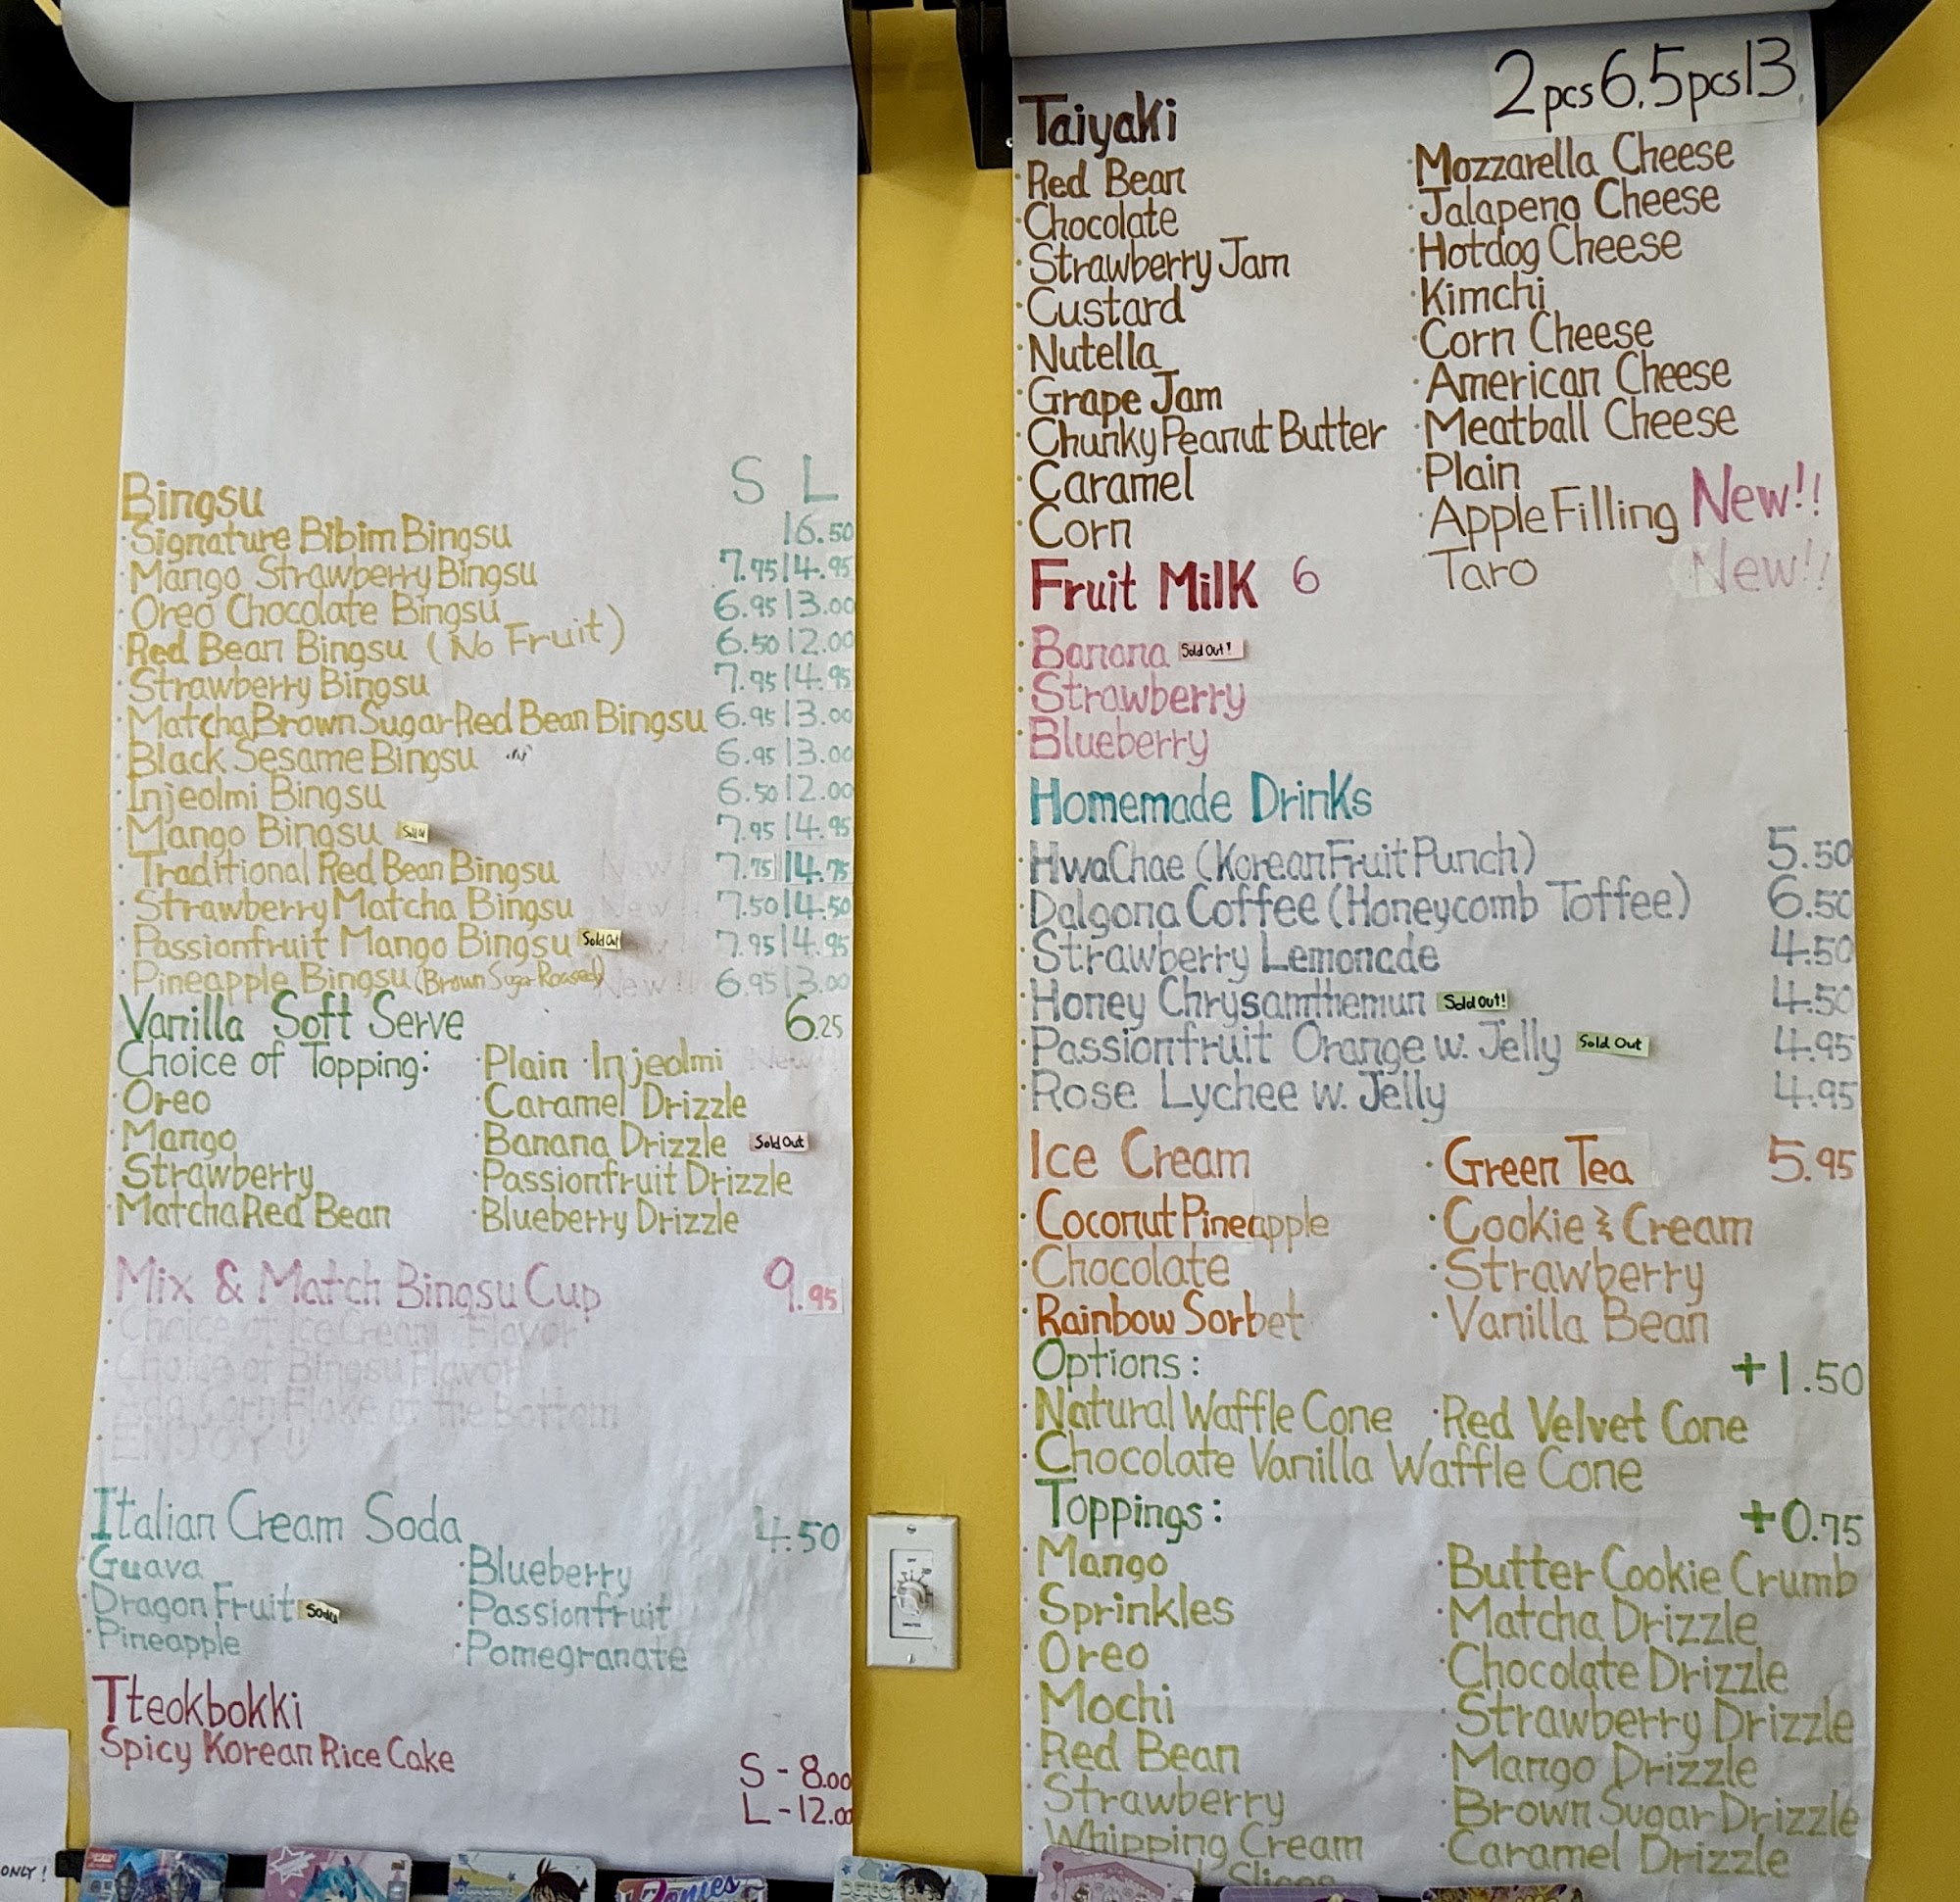 Bingsu S L
Signature Bibim Bingsu 16.50
Mango Strawberry Bingsu 7.95 14.95
Oreo Chocolate Bingsu 6.95 13.00
Red Bean Bingsu (No Fruit) 6.50 12.00
Strawberry Bingsu 7.95 14.95
Matcha Brown Sugar Red Bean Bingsu 6.95 13.00
Black Sesame Bingsu 6.95 13.00
Injeolmi Bingsu 6.50 12.00
Mango Bingsu 7.95 14.95
Traditional Red Bean Bingsu New 7.75 14.75
Strawberry Matcha Bingsu New!! 7.50 14.50
Passionfruit Mango Bingsu Sold Out 7.95 14.95
Pineapple Bingsu (Brown Sugar Roased) New!! 6.95 13.00
Vanilla Soft Serve 6.25
Choice of Topping: ·Plain ·Injeolmi New!!
·Oreo ·Caramel Drizzle
·Mango ·Banana Drizzle Sold Out
·Strawberry ·Passionfruit Drizzle
·Matcha Red Bean ·Blueberry Drizzle
Mix & Match Bingsu Cup 9.95
·Choice of Ice Cream Flavor
·Choice of Bingsu Flavor
·Add Corn Flake at the Bottom
·ENJOY
Italian Cream Soda 4.50
·Guava ·Blueberry
·Dragon Fruit ·Passionfruit
·Pineapple ·Pomegranate
Tteokbokki
Spicy Korean Rice Cake
S - 8.00
L - 12.00
ONLY!
2pcs6.5pcs13
Taiyaki
·Red Bean ·Mozzarella Cheese
·Chocolate ·Jalapeno Cheese
·Strawberry Jam ·Hotdog Cheese
·Custard ·Kimchi
·Nutella ·Corn Cheese
·Grape Jam ·American Cheese
·Chunky Peanut Butter ·Meatball Cheese
·Caramel ·Plain
·Corn ·Apple Filling New!!
·Taro New!!
Fruit Milk 6
·Banana Sold Out!
·Strawberry
·Blueberry
Homemade Drinks
·HwaChae (Korean Fruit Punch) 5.50
·Dalgona Coffee (Honeycomb Toffee) 6.50
·Strawberry Lemonade 4.50
·Honey Chrysamthemun Sold Out! 4.50
·Passionfruit Orange w. Jelly Sold Out 4.95
·Rose Lychee w. Jelly 4.95
Ice Cream ·Green Tea 5.95
·Coconut Pineapple ·Cookie & Cream
·Chocolate ·Strawberry
·Rainbow Sorbet ·Vanilla Bean
Options: +1.50
·Natural Waffle Cone ·Red Velvet Cone
·Chocolate Vanilla Waffle Cone
Toppings: +0.75
·Mango ·Butter Cookie Crumb
·Sprinkles ·Matcha Drizzle
·Oreo ·Chocolate Drizzle
·Mochi ·Strawberry Drizzle
·Red Bean ·Mango Drizzle
·Strawberry ·Brown Sugar Drizzle
·Whipping Cream ·Caramel Drizzle
Slices